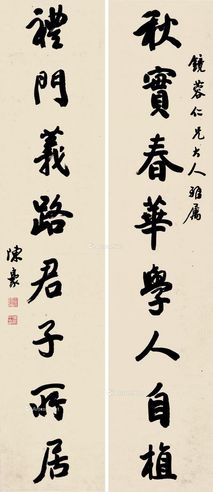 鏡蓉仁兄大人雅屬
秋實春華學人自植
禮門義路君子所居
陳豪